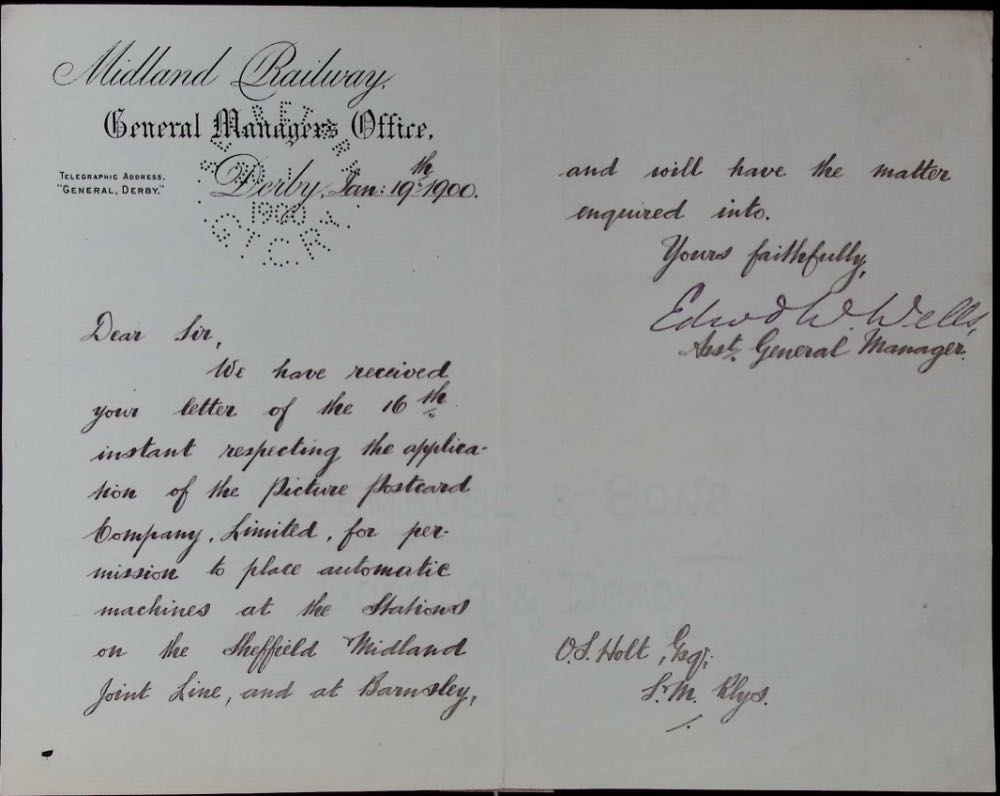 Midland Railway.
General Managers Office,
TELEGRAPHIC ADDRESS,
"GENERAL, DERBY."
Derby, Jan: 19th 1900.
1900
G.I.C.R.
Dear Sir,
We have received
your letter of the 16th
instant respecting the applica-
tion of the Picture Postcard
Company, Limited, for per-
mission to place automatic
machines at the Stations
on the Sheffield & Midland
Joint Line, and at Barnsley,
and will have the matter
enquired into.
Yours faithfully,
Edwd W. Wells,
Asst. General Manager.
O.S. Holt, Esq;
S. & M. Rlys.
& SONS
DERBY